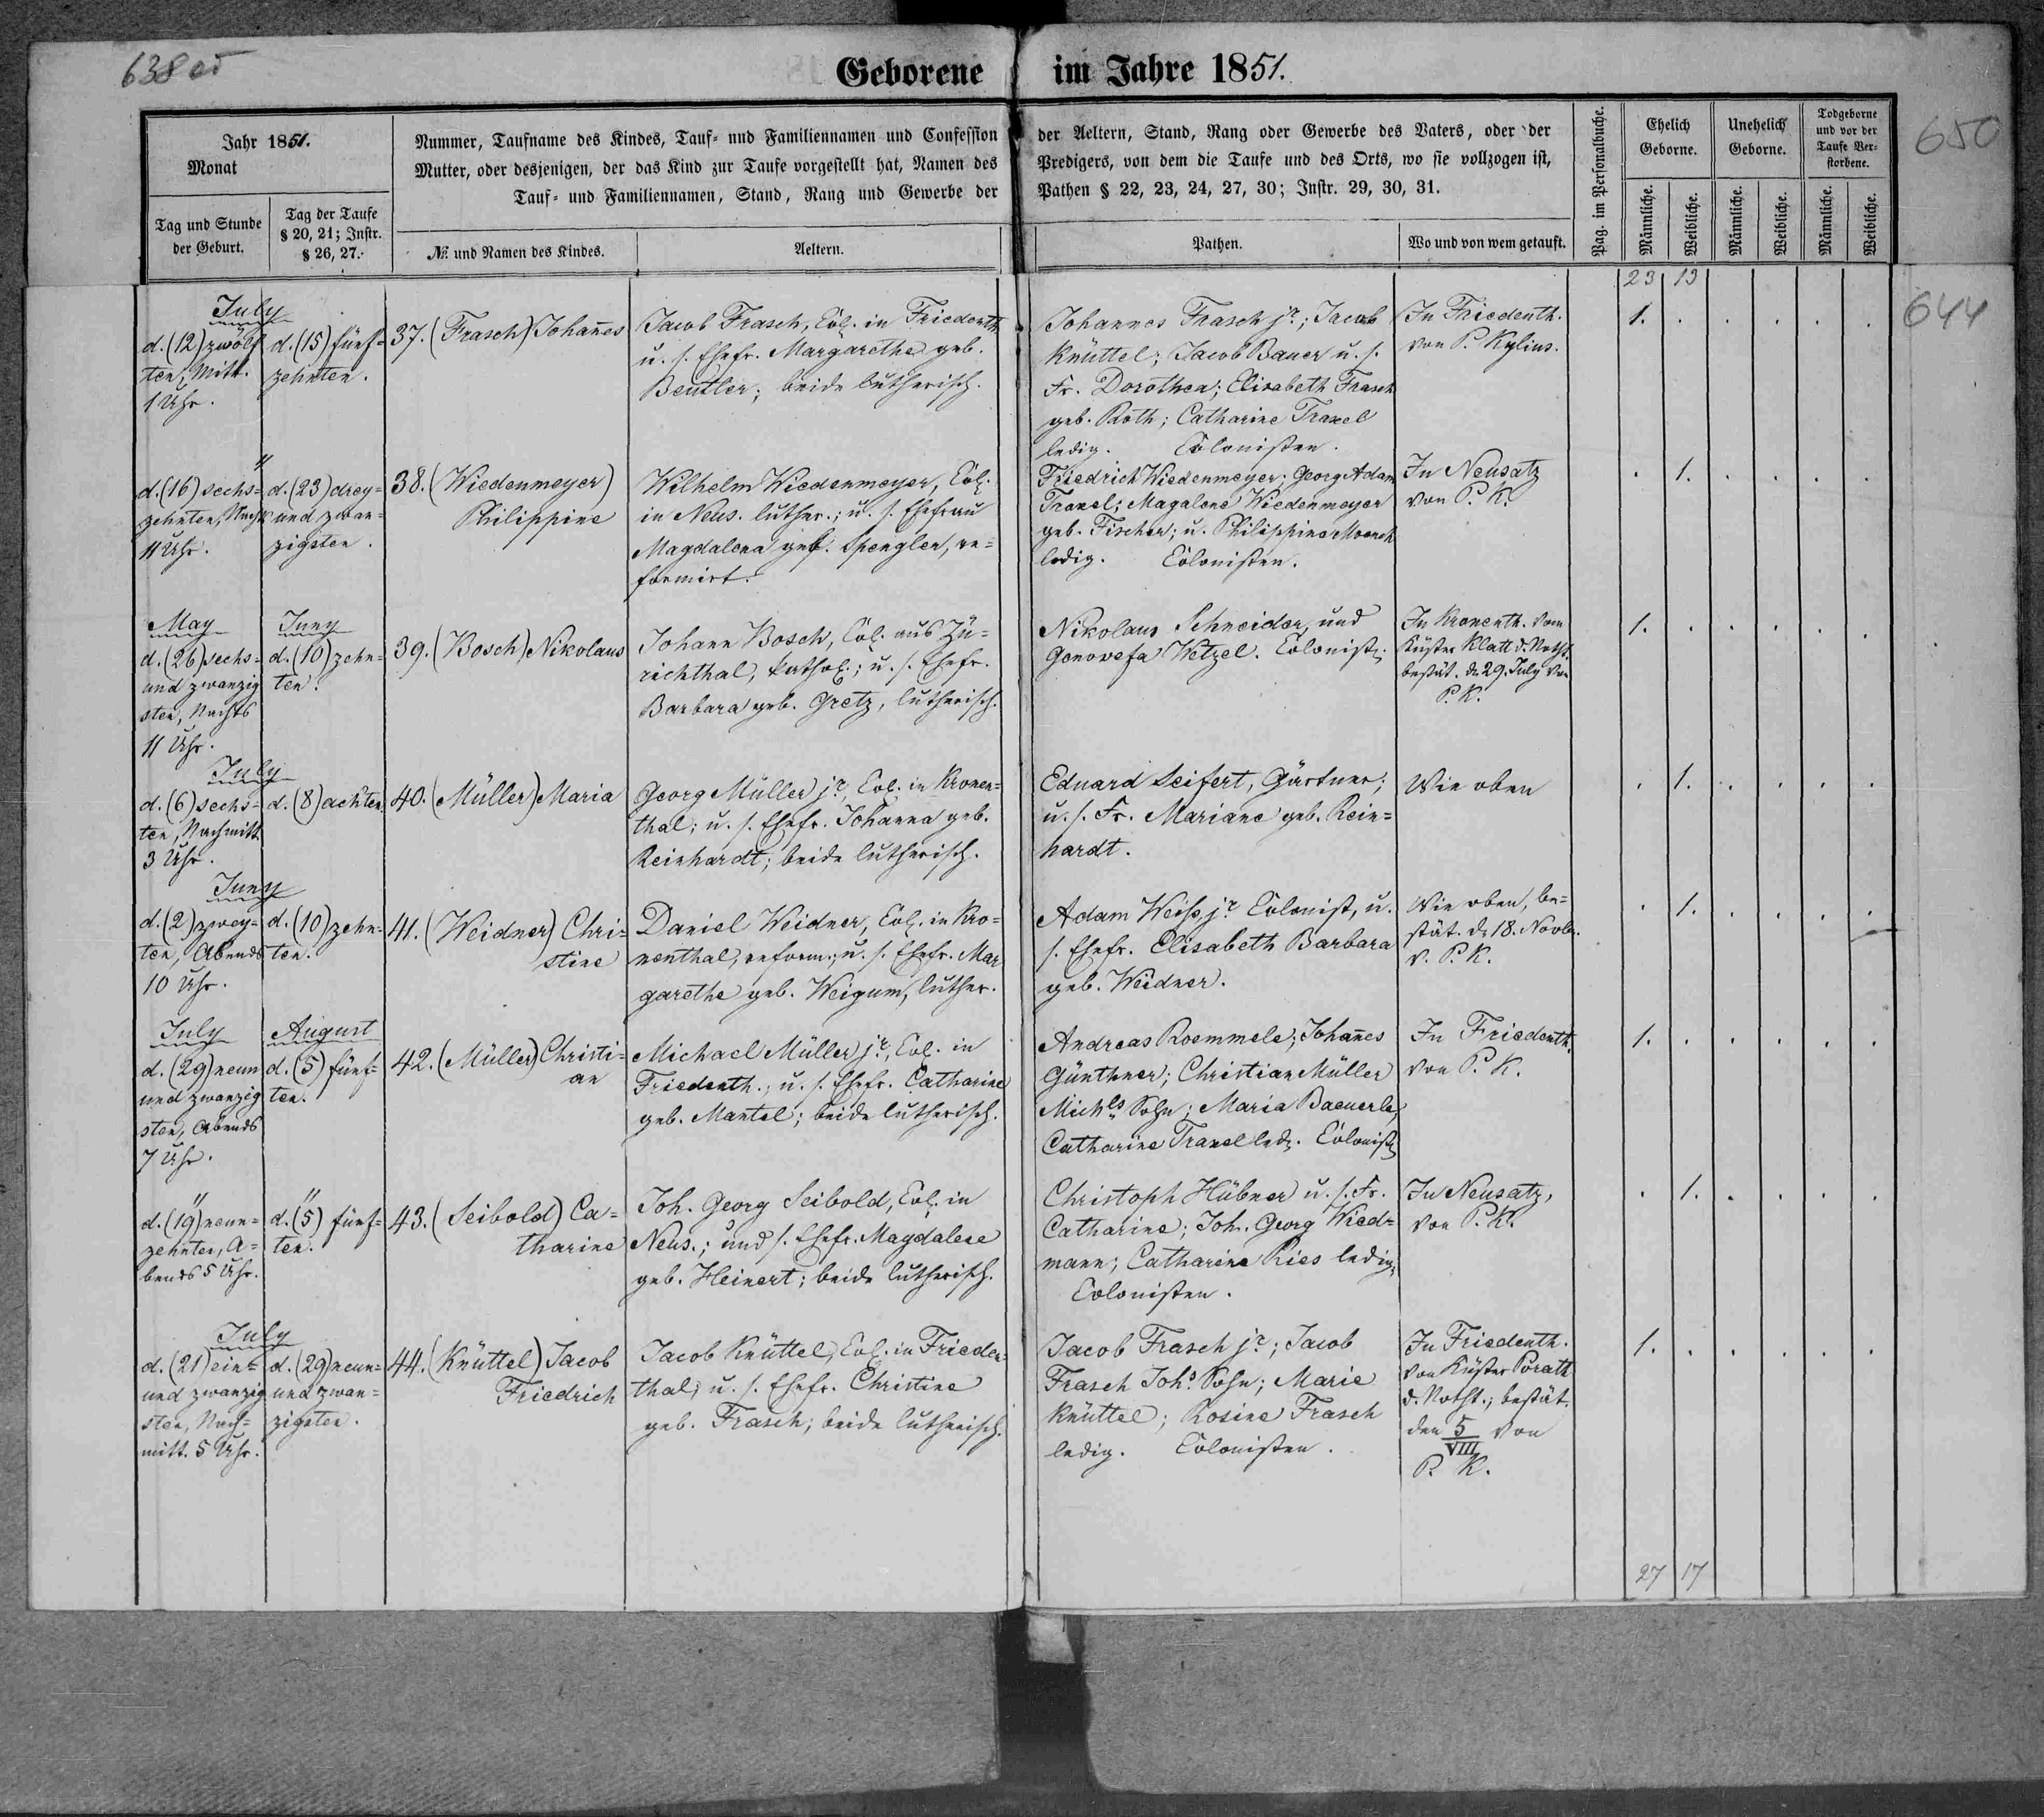 638
Geborene im Jahre 1851.
650
644
Jahr 1851.
Monat
Tag und Stunde
der Geburt.
Tag der Taufe
§ 20, 21; Instr.
§ 26, 27.
Nummer, Taufname des Kindes, Tauf- und Familiennamen und Confession
Mutter, oder desjenigen, der das Kind zur Taufe vorgestellt hat, Namen des
Tauf- und Familiennamen, Stand, Rang und Gewerbe der
№ und Namen des Kindes.
Aeltern.
der Aeltern, Stand, Rang oder Gewerbe des Vaters, oder der
Predigers, von dem die Taufe und des Orts, wo sie vollzogen ist,
Pathen § 22, 23, 24, 27, 30; Instr. 29, 30, 31.
Pathen.
Wo und von wem getauft.
Pag. im Personalbuche.
Ehelich
Geborne.
Unehelich
Geborne.
Todgeborne
und vor der
Taufe Ver-
storbene.
Männliche.
Weibliche.
Männliche.
Weibliche.
Männliche.
Weibliche.
23 13
July
d. (12) zwölf
ten, Mitt.
1 Uhr.
d. (15) fünf-
zehnten.
37. (Frasch) Johan̄es
Jacob Frasch, Col. in Friedenth
u. s. Ehefr. Margarethe geb.
Beutler; beide lutherisch.
Johannes Frasch jr.; Jacob
Knüttel; Jacob Bauer u. s.
Fr. Dorothea; Elisabeth Frasch
geb. Roth; Catharine Traxel
ledig. Colonisten.
In Friedenth.
von P. Kylius.
1. . . . . .
"
d. (16) sechs-
zehnten, Nachts
11 Uhr.
d. (23) drey-
und zwan-
zigsten.
38. (Wiedenmeyer)
Philippine
Wilhelm Wiedenmeyer, Col.
in Neus. luther.; u. s. Ehefrau
Magdalena geb. Spengler, re-
formirt.
Friedrich Wiedenmeyer; Georg Adam
Traxel; Magalene Wiedenmeyer
geb. Fischer; u. Philippine Moench
ledig. Colonisten.
In Neusatz
von P. K.
. 1. . . . .
May
d. (26) sechs-
und zwanzig
sten, Nachts
11 Uhr.
Juny
d. (10) zehn-
ten.
39. (Bosch) Nikolaus
Johann Bosch, Col. aus Zü-
richthal, kathol.; u. s. Ehefr.
Barbara geb. Gretz, lutherisch.
Nikolaus Schneider, und
Genovefa Wetzel. Colonist.
In Kronenth. vom
Küster Klatt d. Notht.
bestät. d. 29. July von
P. K.
1. . . . . .
July
d. (6) sechs-
ten, Nachmitt.
3 Uhr.
d. (8) achten.
40. (Müller) Maria
Georg Müller jr., Col. in Kronen-
thal; u. s. Ehefr. Johanna geb.
Reinhardt; beide lutherisch.
Eduard Seifert, Gärtner;
u. s. Fr. Mariane geb. Rein-
hardt.
Wie oben
. 1. . . . .
Juny
d. (2) zwey-
ten, Abends
10 Uhr.
d. (10) zehn-
ten.
41. (Weidner) Chri-
stine
Daniel Weidner, Col. in Kro-
nenthal, reform.; u. s. Ehefr. Mar
garethe geb. Weigum, luther.
Adam Weiss jr. Colonist, u.
s. Ehefr. Elisabeth Barbara
geb. Weidner.
Wie oben, be-
stät. d. 18. Novbr.
v. P. K.
. 1. . . . .
July
d. (29) neun
und zwanzig
sten, Abends
7 Uhr.
August
d. (5) fünf-
ten.
42. (Müller) Christi-
an
Michael Müller jr., Col. in
Friedenth.; u. s. Ehefr. Catharine
geb. Mantel; beide lutherisch.
Andreas Roemmele; Johan̄es
Günthner; Christian Müller
Michls. Sohn; Maria Baeuerle,
Catharine Traxel led. Colonist
In Friedenth.
von P. K.
1. . . . . .
"
d. (19) neun-
zehnten, A-
bends 5 Uhr.
"
d. (5) fünf-
ten.
43. (Seibold) Ca-
tharine
Joh. Georg Seibold, Col. in
Neus.; und s. Ehefr. Magdalene
geb. Heinert; beide lutherisch.
Christoph Hübner u. s. Fr.
Catharine; Joh. Georg Wied-
mann; Catharine Ries ledig,
Colonisten.
In Neusatz,
von P. K.
. 1. . . . .
July
d. (21) ein-
und zwanzig
sten, Nach-
mitt. 5 Uhr.
d. (29) neun-
und zwan-
zigsten.
44. (Knüttel) Jacob
Friedrich
Jacob Knüttel, Col. in Frieden-
thal; u. s. Ehefr. Christine
geb. Frasch; beide lutherisch.
Jacob Frasch jr.; Jacob
Frasch Johs. Sohn; Marie
Knüttel; Rosine Frasch
ledig. Colonisten.
In Friedenth.
von Küster Porath
d. Notht.; bestät.
den 5/VIII von
P. K.
1. . . . . .
27 17